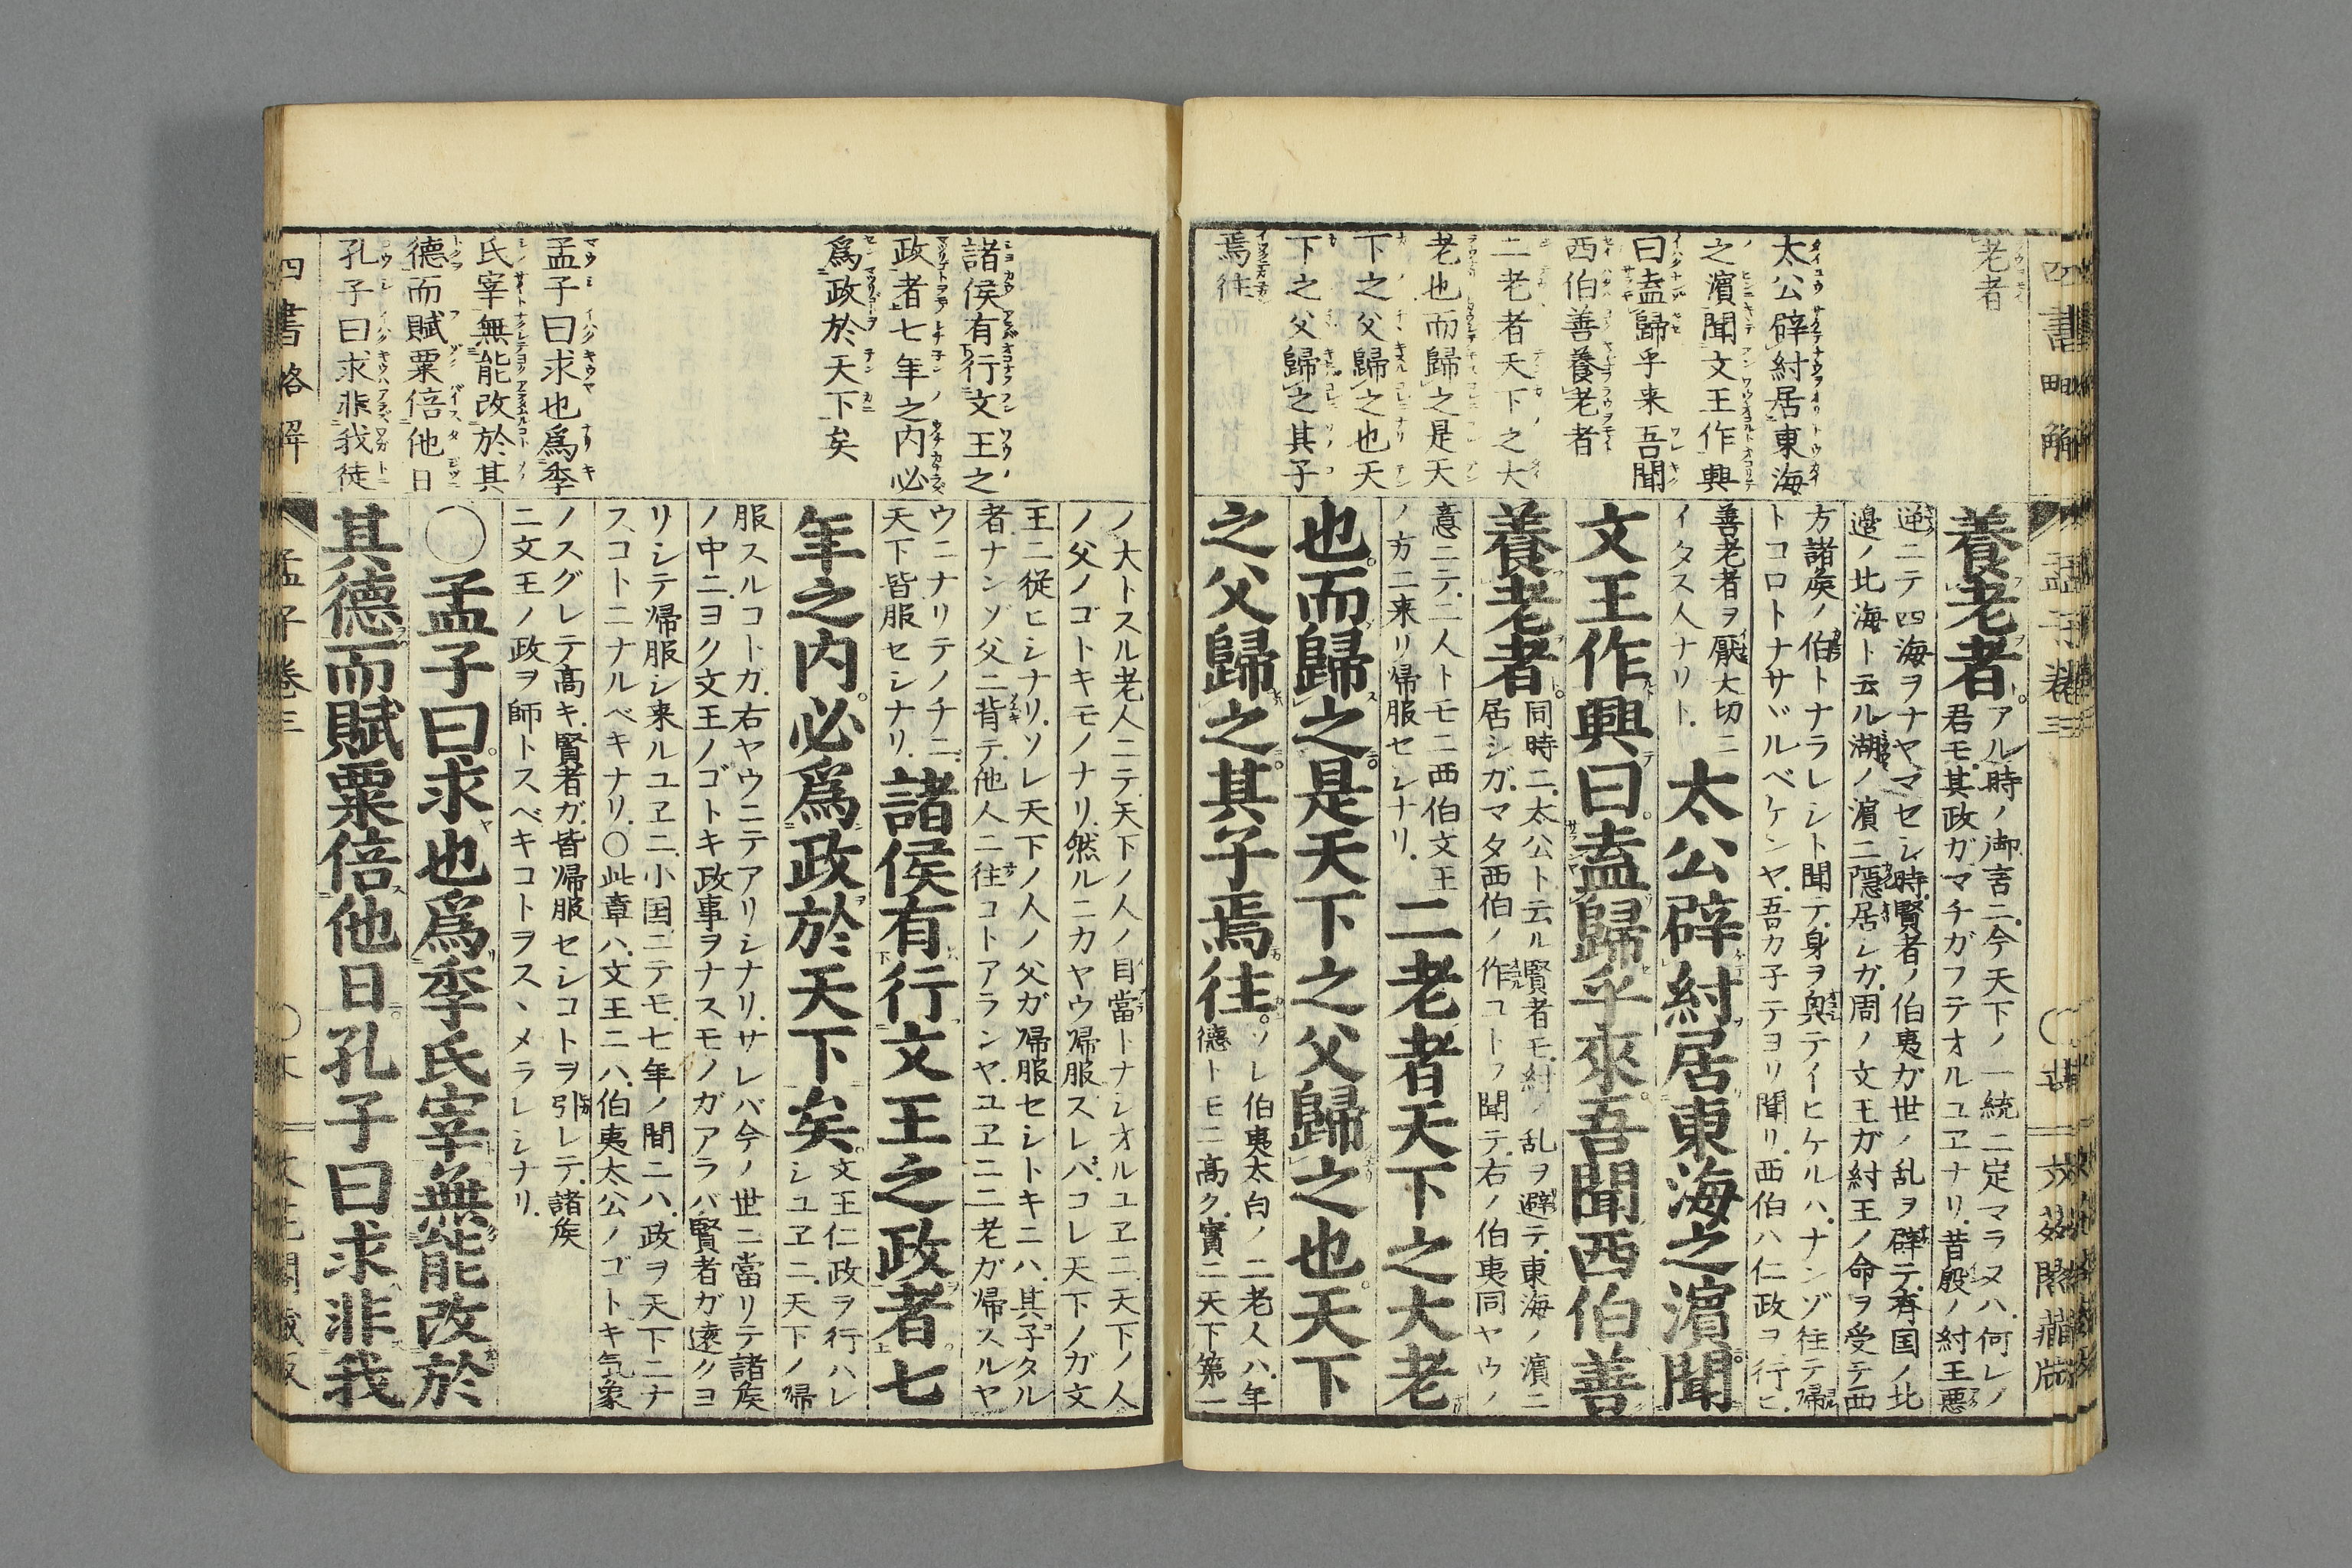 四書略解
孟子卷三
老者
太公辟紂居東海
之濱聞文王作興
曰盍歸乎来吾聞
西伯善養老者
二老者天下之大
老也而歸之是天
下之父歸之也天
下之父歸之其子
焉往
養老者
アル時ノ御言ニ今天下ノ一統ニ定マラヌハ何レノ
君モ其政ガマチガフテオルユヱナリ昔殷ノ紂王悪
逆ニテ四海ヲナヤマセシ時賢者ノ伯夷ガ世ノ乱ヲ辟テ斉国ノ北
邊ノ北海ト云ル湖ノ濱ニ隠居シガ周ノ文王ガ紂王ノ命ヲ受テ西
方諸矦ノ伯トナラレシト聞テ身ヲ興テイヒケルハナンゾ往テ帰
トコロトナサヾルベケンヤ吾カ子テヨリ聞リ西伯ハ仁政ヲ行ヒ
善老者ヲ厭大切ニ
イタス人ナリト
太公辟紂居東海之濱聞
文王作興曰盍歸乎來吾聞西伯善
養老者
同時ニ太公ト云ル賢者モ紂ノ乱ヲ避テ東海ノ濱ニ
居シガマタ西伯ノ作ユトヲ聞テ右ノ伯夷同ヤウノ
意ニテ二人トモニ西伯文王
ノ方ニ来リ帰服セシナリ
二老者天下之大老
也而歸之是天下之父歸之也天下
之父歸之其子焉往
ソレ伯夷太白ノ二老人ハ年
德トモニ高ク實ニ天下第一
諸侯有行文王之
政者七年之内必
爲政於天下矣
孟子曰求也爲季
氏宰無能改於其
德而賦粟倍他日
孔子曰求非我徒
ノ大トスル老人ニテ天下ノ人ノ目當トナシオルユヱニ天下ノ人
ノ父ノゴトキモノナリ然ルニカヤウ帰服スレバコレ天下ノガ文
王ニ従ヒシナリソレ天下ノ人ノ父ガ帰服セシトキニハ其子タル
者ナンゾ父ニ背テ他人ニ往コトアランヤユヱニ二老ガ帰スルヤ
ウニナリテノチニ
天下皆服セシナリ
諸侯有行文王之政者七
年之内必爲政於天下矣
文王仁政ヲ行ハレ
シユヱニ天下ノ帰
服スルコトカ右ヤウニテアリシナリサレバ今ノ世ニ當リテ諸矦
ノ中ニヨク文王ノゴトキ政事ヲナスモノガアラバ賢者ガ遠クヨ
リシテ帰服シ来ルユヱニ小国ニテモ七年ノ間ニハ政ヲ天下ニナ
スコトニナルベキナリ○此章ハ文王ニハ伯夷太公ノゴトキ気象
ノスグレテ高キ賢者ガ皆帰服セシコトヲ引レテ諸矦
ニ文王ノ政ヲ師トスベキコトヲスヽメラレシナリ
○孟子曰求也爲季氏宰無能改於
其德而賦粟倍他日孔子曰求非我
四書略解
孟子卷三